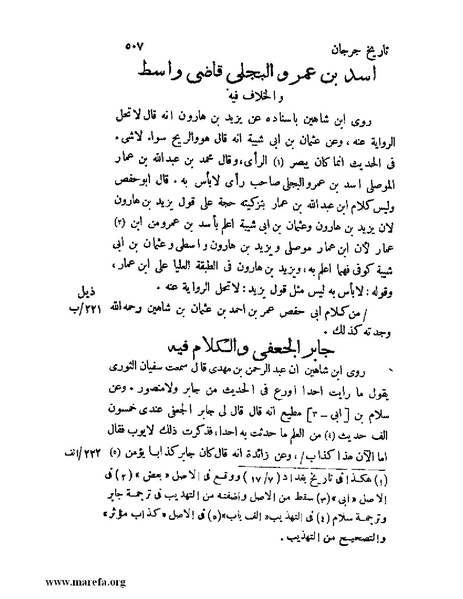 تاريخ جرجان ٥٠٧
اسد بن عمرو البجلى قاضى واسط
والخلاف فيه
روى ابن شاهين باسناده عن يزيد بن هارون انه قال لاتحل
الرواية عنه ، وعن عثمان بن ابى شيبة انه قال هو والريح سواء لاشىء
فى الحديث انما كان يبصر (١) الرأى، وقال محمد بن عبدالله بن عمار
الموصلى اسد بن عمرو البجلى صاحب رأى لابأس به . قال ابوحفص
وليس كلام ابن عبدالله بن عمار بتزكيته حجة على قول يزيد بن هارون
لان يزيد بن هارون وعثمان بن ابى شيبة اعلم بأسد بن عمرو من ابن (٢)
عمار لأن ابن عمار موصلى و يزيد بن هارون واسطى وعثمان بن ابى
شيبة كوفى فهما اعلم به، ويزيد بن هارون فى الطبقة العليا على ابن عمار،
وقوله: لابأس به ليس مثل قول يزيد: لاتحل الرواية عنه.
ذيل
/ من كلام ابى حفص عمر بن احمد بن عثمان بن شاهين رحمه الله ٢٢١/ب
وجدته كذلك .
جابر الجعفى والكلام فيه
روى ابن شاهين ان عبد الرحمن بن مهدى قال سمعت سفيان الثورى
يقول ما رايت احدا اورع فى الحديث من جابر ولامنصور . وعن
سلام بن [ ابى – ٣ ] مطيع انه قال قال لى جابر الجعفى عندى خمسون
الف حديث (٤) من العلم ما حدثت به احدا، فذكرت ذلك لايوب فقال
اما الآن هذا كذاب /، وعن زائدة انه قال كان جابر كذابا يؤمن (٥) ٢٢٢/الف
(١) هكذا فى تاريخ بغداد (١٧/٧) ووقع فى الاصل «بعض» (٢) فى
الاصل «ابى» (٣) سقط من الاصل واضفته من التهذيب فى ترجمة جابر
وترجمة سلام (٤) فى التهذيب «الف باب» (٥) فى الاصل «كذاب مؤثر»
والتصحيح من التهذيب.
www.marefa.org